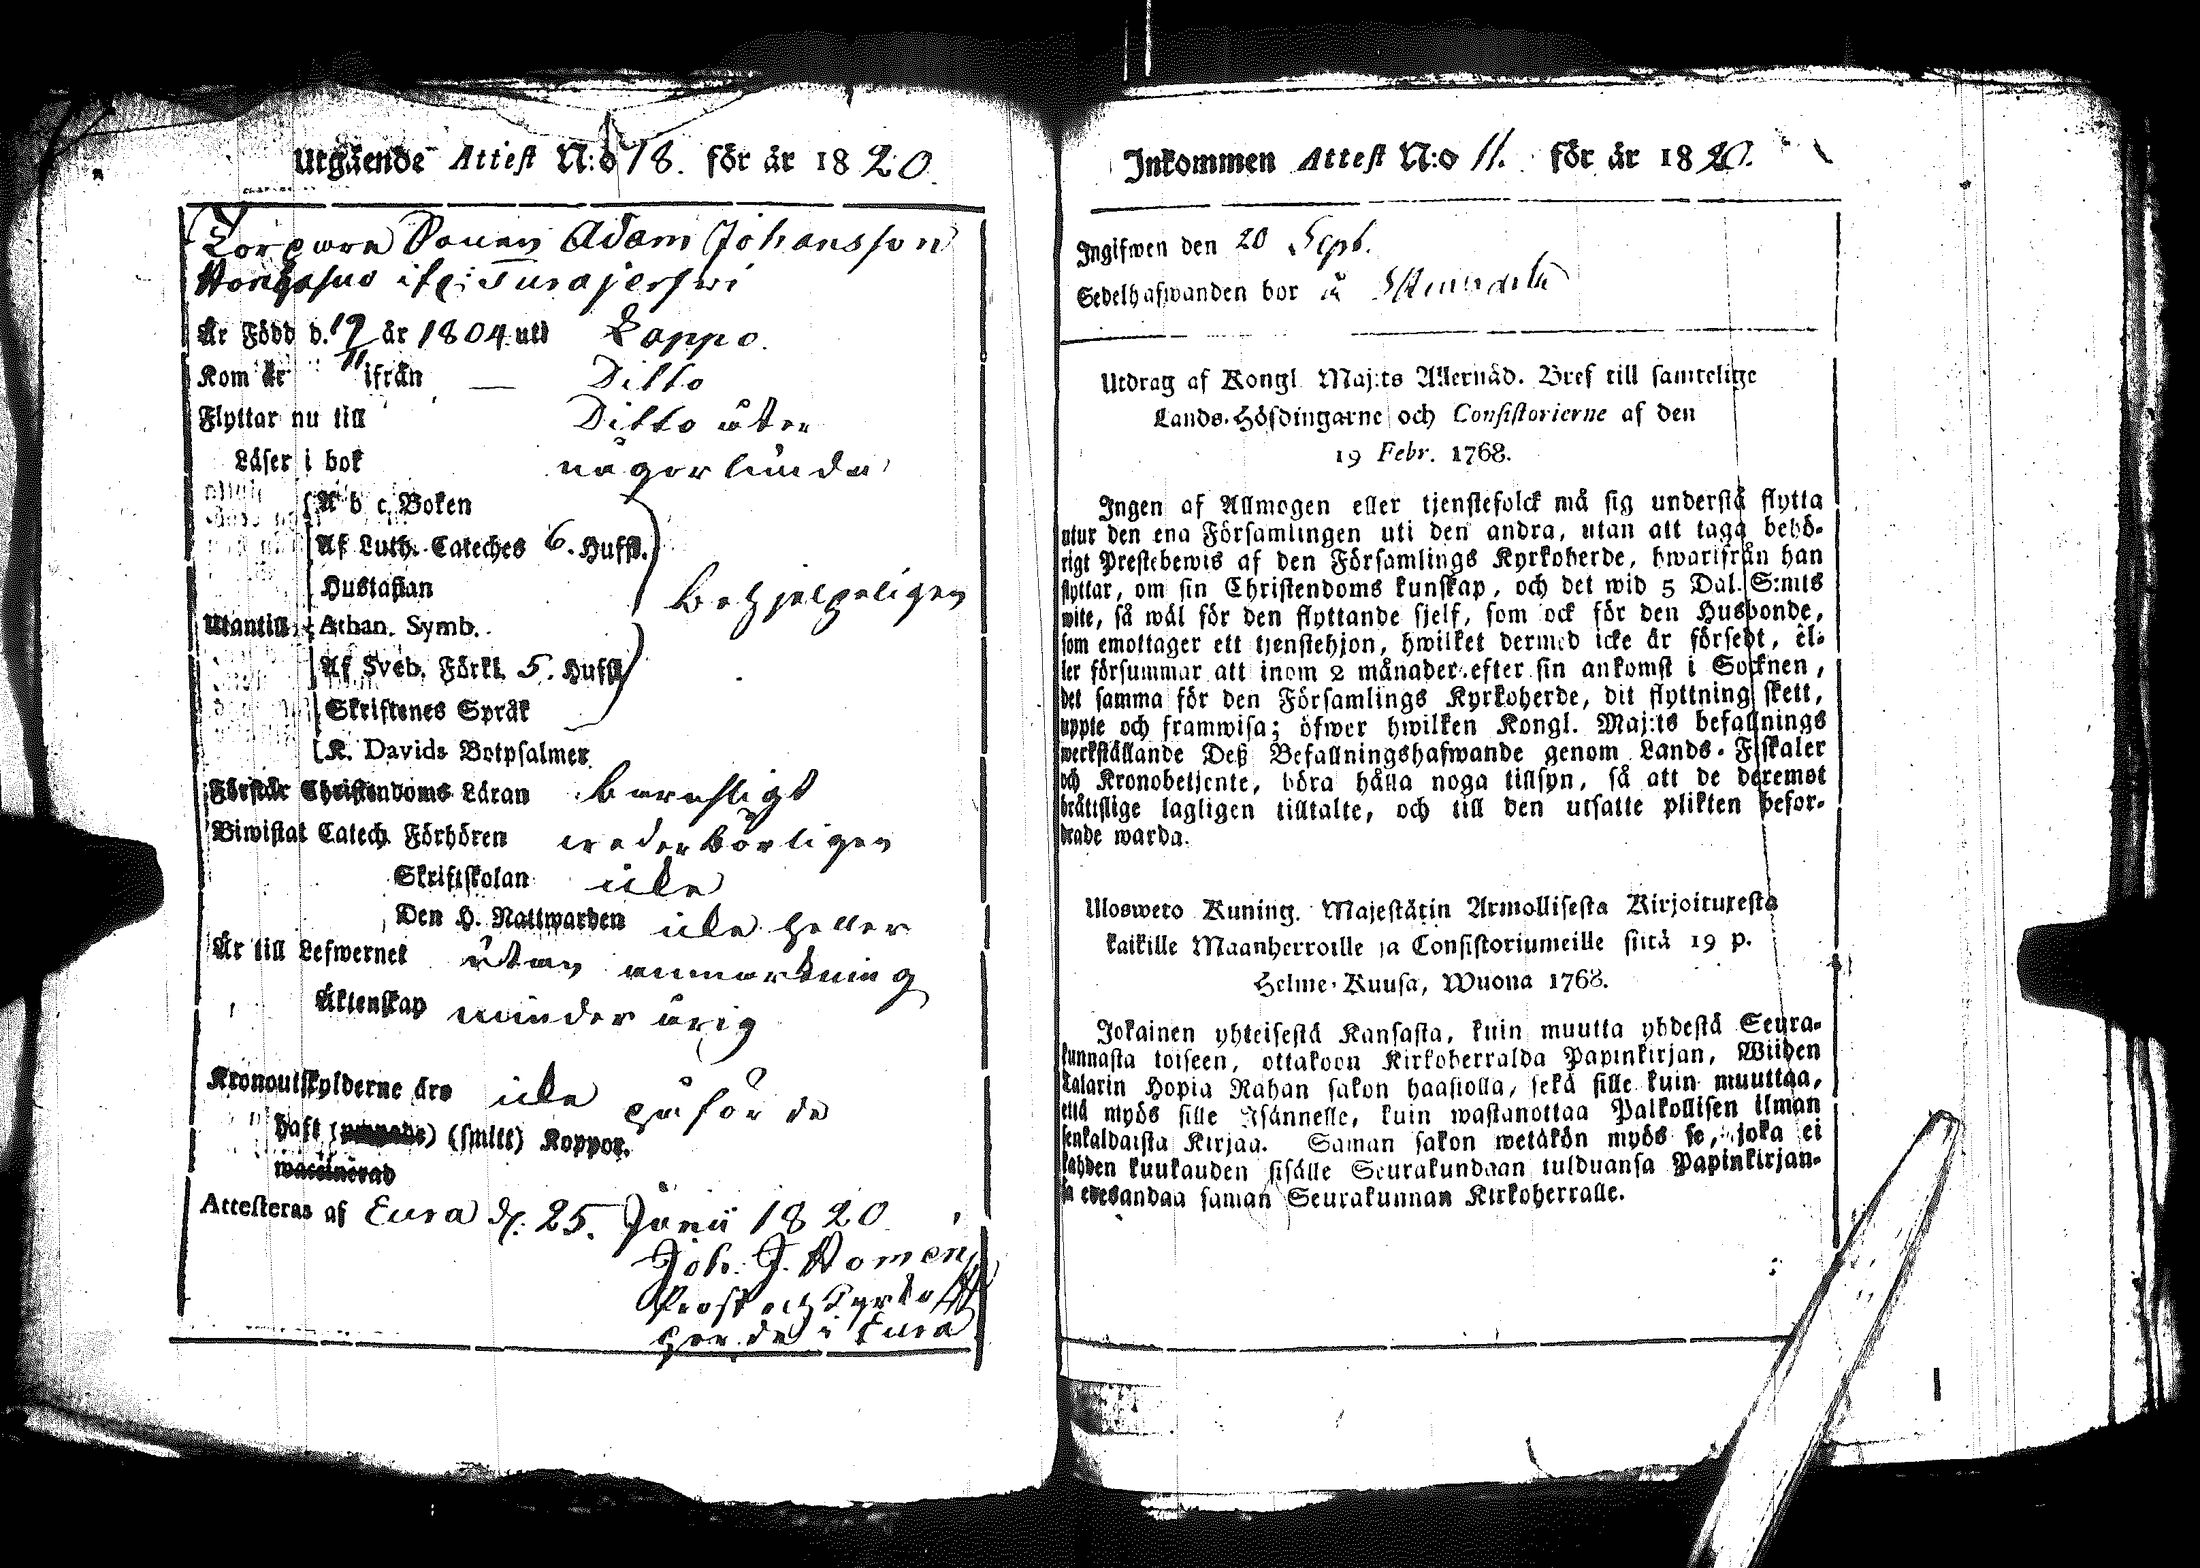 Utgående Attest N:o 18. för år 1820.
Torpare Sonen Adam Johansson
Honghsuo ifr: Turajerfwi
Är Född d. 19/11 år 1804 uti Lappo.
Kom år ifrån — Ditto
Flyttar nu till Ditto åter
Läser i bok någorlunda
A b c Boken
Af Luth. Cateches 6. Hufst.
Hustaflan
behjelpeligen
Utantill Athan. Symb.
Af Sveb. Förkl. 5. Hufst.
Skriftenes Språk
K. Davids Botpsalmer
Förstår Christendoms Läran
Biwistat Catech. Förhören wederbörligen
Skriftskolan icke
Den H. Nattwarden icke heller
Är till Lefwernet utan anmärkning
Äktenskap minder årig
Kronoutskylderne äro icke påförde
haft (smitt) Koppor.
waccinerad
Attesteras af Eura d. 25. Junii 1820
Joh. J. Homen
Prost och Kyrko
herde i Eura
Inkommen Attest N:o 11. för år 1820.
Ingifwen den 20 Sept.
Sedelhafwanden bor å
Utdrag af Kongl. Maj:ts Allernåd. Bref till samtelige
Lands-Höfdingarne och Consistorierne af den
19 Febr. 1768.
Ingen af Allmogen eller tjenstefolck må sig understå flytta
utur den ena Församlingen uti den andra, utan att taga behö-
rigt Prestebewis af den Församlings Kyrkoherde, hwarifrån han
flyttar, om sin Christendoms kunskap, och det wid 5 Dal. S:mts
wite, så wäl för den flyttande sjelf, som ock för den Husbonde,
som emottager ett tjenstehjon, hwilket dermed icke är försedt, el-
ler försummar att inom 2 månader efter sin ankomst i Socknen,
det samma för den Församlings Kyrkoherde, dit flyttning skett,
uppte och framwisa; öfwer hwilken Kongl. Maj:ts befallnings
werkställande Deß Befallningshafwande genom Lands-Fiskaler
och Kronobetjente, böra hålla noga tillsyn, så att de deremot
bråttslige lagligen tilltalte, och till den utsatte plikten befor-
drade warda.
Ulosweto Kuning. Majestätin Armollisesta Kirjoituxesta
kaikille Maanherroille ja Consistoriumeille siitä 19 p.
Helme-Kuusa, Wuona 1768.
Jokainen yhteisestä Kansasta, kuin muutta yhdestä Seura-
kunnasta toiseen, ottakoon Kirkoherralda Papinkirjan, Wiiden
talarin Hopia Rahan sakon haastolla, sekä sille kuin muuttaa,
että myös sille Isännelle, kuin wastanottaa Palkollisen ilman
senkaldaista Kirjaa. Saman sakon wetäkön myös se, joka ei
kahden kuukauden sisälle Seurakundaan tulduansa Papinkirjan-
sa edesandaa saman Seurakunnan Kirkoherralle.